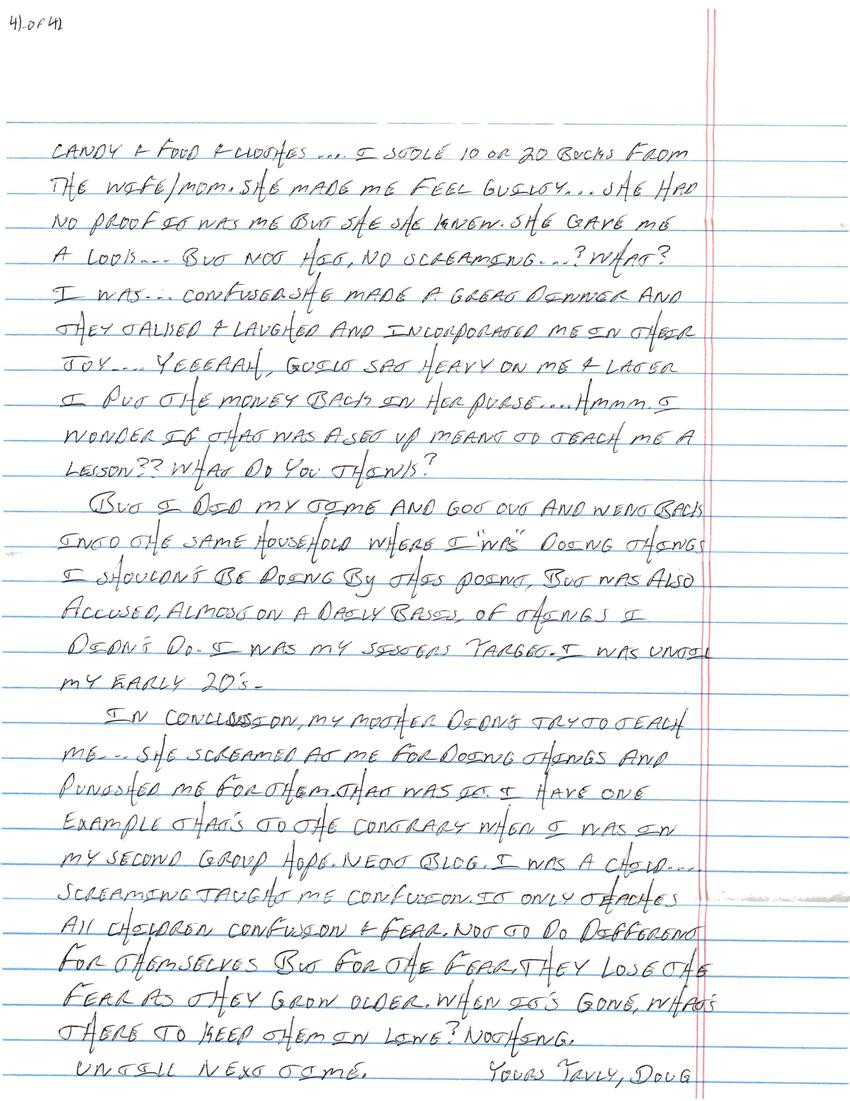 4) of 4)
CANDY & FOOD & CLOTHES.... I STOLE 10 OR 20 BUCKS FROM
THE WIFE/MOM. SHE MADE ME FEEL GUILTY... SHE HAD
NO PROOF IT WAS ME BUT SHE SHE KNEW. SHE GAVE ME
A LOOK.... BUT NOT HIT, NO SCREAMING....? WHAT?
I WAS... CONFUSER SHE MADE A GREAT DINNER AND
THEY TALKED & LAUGHED AND INCORPORATED ME IN THEIR
JOY.... YEEEAAH, GUILT SAT HEAVY ON ME & LATER
I PUT THE MONEY BACK IN HER PURSE.... HMMM. I
WONDER IF THAT WAS A SET UP MEANT TO TEACH ME A
LESSON?? WHAT DO YOU THINK?
BUT I DID MY TIME AND GOT OUT AND WENT BACK
INTO THE SAME HOUSEHOLD WHERE I "WAS" DOING THINGS
I SHOULDN'T BE DOING BY THIS POINT, BUT WAS ALSO
ACCUSED, ALMOST ON A DAILY BASES, OF THINGS I
DIDN'T DO. I WAS MY SISTERS TARGET. I WAS UNTIL
MY EARLY 20'S-
IN CONCLUSSION, MY MOTHER DIDN'T TRY TO TEACH
ME.... SHE SCREAMED AT ME FOR DOING THINGS AND
PUNISHED ME FOR THEM. THAT WAS IT. I HAVE ONE
EXAMPLE THAT'S TO THE CONTRARY WHEN I WAS IN
MY SECOND GROUP HOPE. NEXT BLOG. I WAS A CHILD....
SCREAMING TAUGHT ME CONFUSION. IT ONLY TEACHES
All CHILDREN CONFUSION & FEAR. NOT TO DO DIFFERENT
FOR THEMSELVES BUT FOR THE FEAR. THEY LOSE THE
FEAR AS THEY GROW OLDER. WHEN IT'S GONE, WHAT'S
THERE TO KEEP THEM IN LINE? NOTHING.
UNTILL NEXT TIME. YOURS TRULY, DOUG